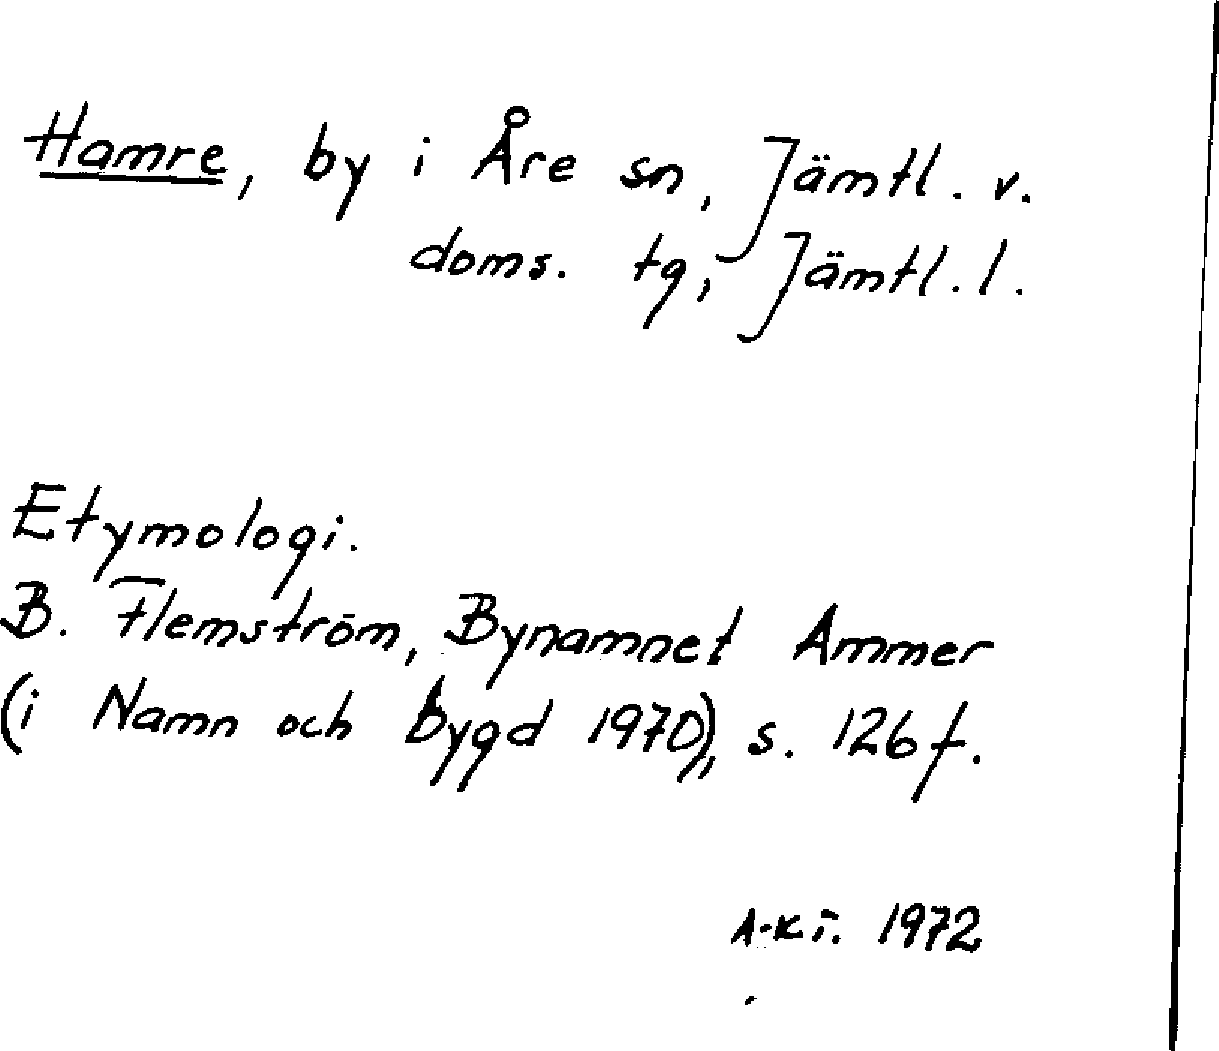 Hamre, by i Åre sn, Jämtl. v.
doms. tg, Jämtl. l.
Etymologi.
B. Flemström, Bynamnet Ammer
(i Namn och bygd 1970), s. 126 f.
A-K T. 1972